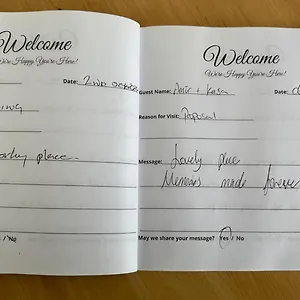 Welcome
We're Happy You're Here!
Date: 2ND October
place
/ No
Welcome
We're Happy You're Here!
Guest Name: + Karen Date:
Reason for Visit: Proposal
Message: Lovely place
Memories made forever
May we share your message? Yes / No